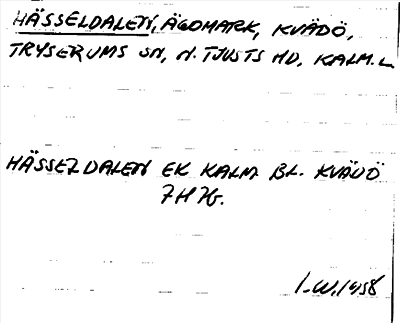 HÄSSELDALEN, ÄGOMARK, KVÄDÖ,
TRYSERUMS SN, N. TJUSTS HD, KALM. L
HÄSSELDALEN EK KALM BL. KVÄDÖ
7H 7g.
I.W. 1958